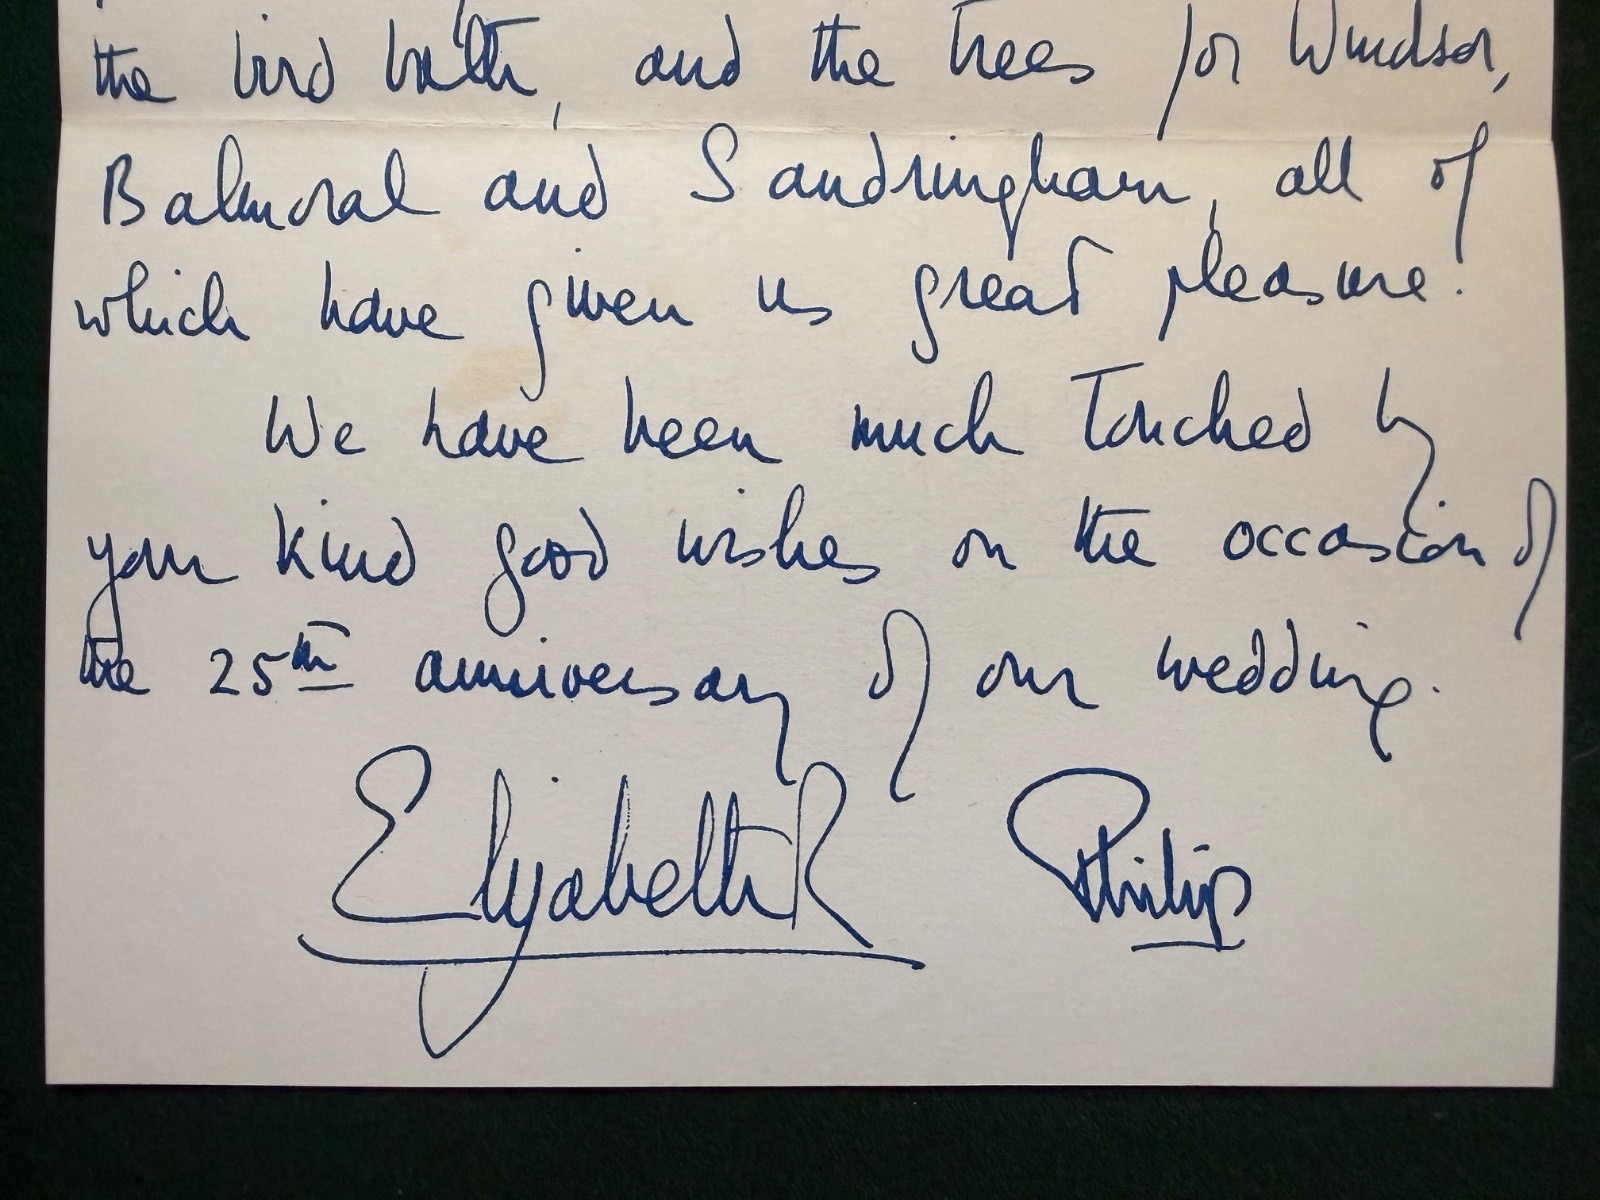 the bird bath, and the trees for Windsor,
Balmoral and Sandringham, all of
which have given us great pleasure.
We have been much touched by
your kind good wishes on the occasion of
the 25th anniversary of our wedding.
Elizabeth R Philip